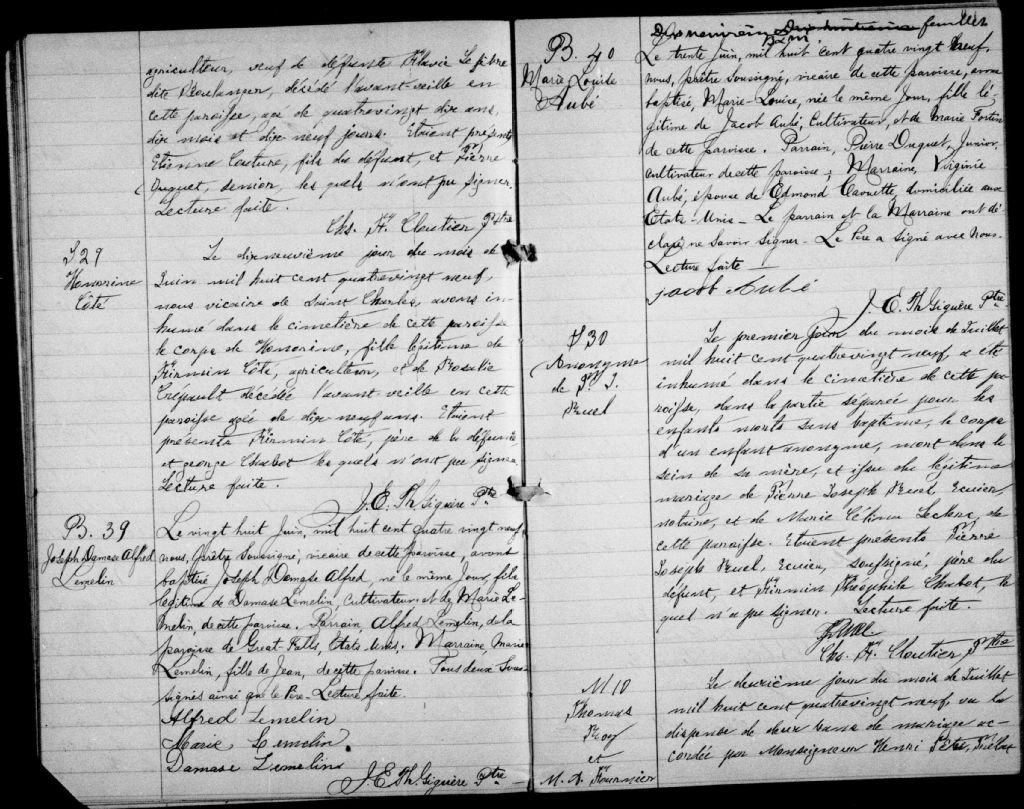 agriculteur, veuf de défunte Élusie Lefebre
dite Boulanger, décédé l'avant-veille en
cette paroisse, age de quatrevingt dix ans,
dix mois et dix neuf jours. Etaient présents
Etienne Couture, fils du défunt, et Pierre
Duquet, senior, les quels n'ont pu signer.
Lecture faite.
Chs. H. Cloutier Ptre
S 29
Honorine
Côté
Le dixneuvième jour du mois de
Juin mil huit cent quatrevingt neuf,
nous vicaire de Saint Charles, avons in-
humé dans le cimetière de cette paroisse
le corps de Honorine, fille légitime de
Firmin Côté, agriculteur, et de Rosalie
Crépault décédée l'avant veille en cette
paroisse agée de dix neuf ans. Etaient
présents Firmin Côté, père de la défunte
et george Chabot les quels n'ont pu signer
Lecture faite.
J. E. Th. Giguère Ptre
B. 39
Joseph Damase Alfred
Lemelin
Le vingt huit Juin, mil huit cent quatre vingt neuf,
nous, prêtre soussigné, vicaire de cette paroisse, avons
baptisé Joseph Damase Alfred, né le même Jour, fils
légitime de Damase Lemelin, Cultivateur, et de Marie Le-
melin, de cette paroisse. Parrain Alfred Lemelin, de la
paroisse de Great Falls, Etats Unis. Marraine Marie
Lemelin, fille de Jean, de cette paroisse. Tous deux Sous-
signés ainsi que le Père. Lecture faite.
Alfred Lemelin
Marie Lemelin.
Damase Lemelin
J. E. Th. Giguère Ptre
feuillet
B. 40
Marie Louise
Aubé
Le trente Juin, mil huit cent quatre vingt neuf,
nous, prêtre soussigné, vicaire de cette paroisse, avons
baptisé, Marie-Louise, née le même Jour, fille lé-
gitime de Jacob Aubé, Cultivateur, et de Marie Fortin
de cette paroisse. Parrain, Pierre Duquet, Junior,
cultivateur de cette paroisse; Marraine, Virginie
Aubé, épouse de Edmond Caouette, domiciliée aux
Etats-Unis - Le parrain et la Marraine ont dé-
claré ne Savoir Signer - Le Père a signé avec Nous.
Lecture faite -
Jacob Aubé
J. E. Th Giguère Ptre.
S 30
Anonyme
de P. J.
Ruel
Le premier Jour du mois de Juillet
mil huit cent quatrevingt neuf, a été
inhumé dans le cimetière de cette pa-
roisse, dans la partie séparée pour les
enfants morts sans baptême, le corps
d'un enfant anonyme, mort dans le
sein de sa mère, et issu du légitime
mariage de Pierre Joseph Ruel, Ecuier,
notaire, et de Marie Leclerc, de
cette paroisse. Etaient présents Pierre
Joseph Ruel, Ecuier, soussigné, père du
défunt, et Firmin Théophile Chabot, le
quel n'a pu signer. Lecture faite.
Chs. H. Cloutier, Ptre
M 10
Thomas
Roy
et
M. A. Fournier
Le deuxième jour du mois de Juillet
mil huit cent quatrevingt neuf, vu la
dispense de deux bans de mariage ac-
cordée par Monseigneur Henri Têtu, Prélat